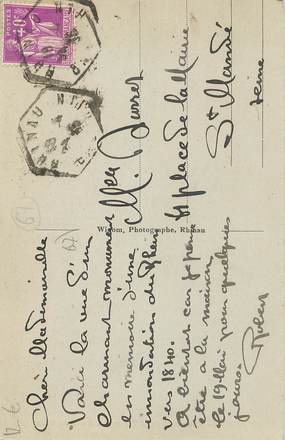 Chère Mademoiselle
Voici la vue d'un
charmant monument
en memoire d'une
inondation du Rhin
vers 1840.
A bientôt car je pense
être a la maison
le 19 Mai pour quelques
jours.
Robert
Wissom, Photographe, Rhinau
Melle
M. Durret
place de la Mairie
St Mandé
Seine
POSTES
40c
RHINAU
(67)